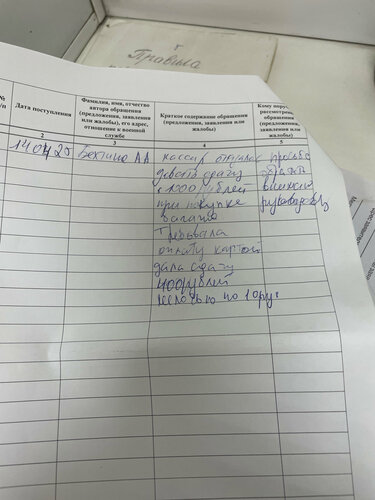 Правила
№
п/п
Дата поступления
Фамилия, имя, отчество
автора обращения
(предложения, заявления
или жалобы), его адрес,
отношение к военной
службе
Краткое содержание обращения
(предложения, заявления или
жалобы)
Кому поручено
рассмотрение
обращения
(предложения,
заявления или
жалобы)
2
3
4
5
14.04.25
АА
кассир
просьба
давать сдачу
с 1000 рублей
при покупке
требовала
оплату картой
дала сдачу
400 рублей
мелочью по 10ру